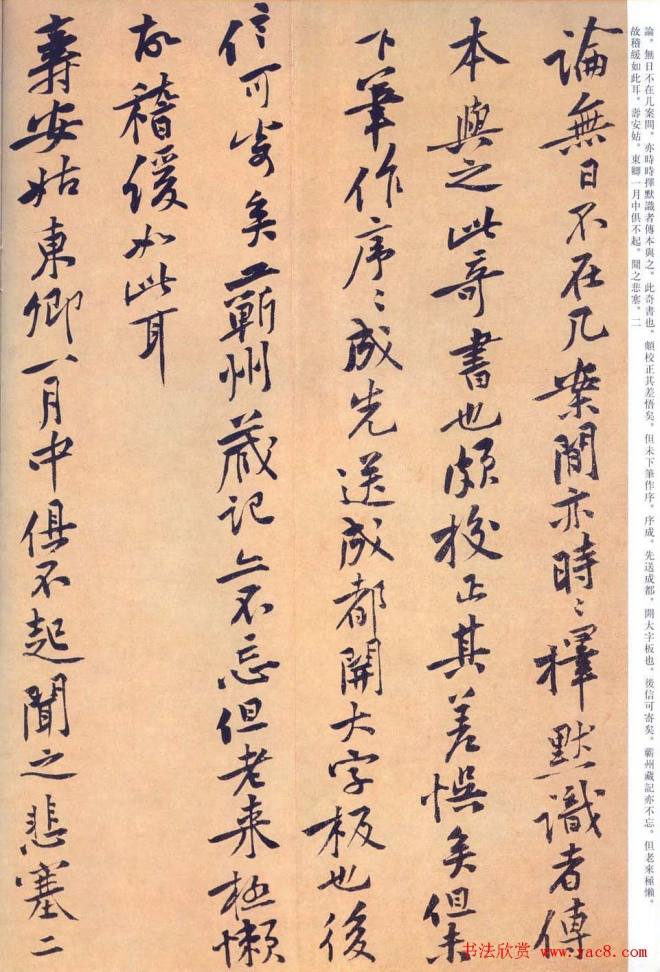 論。無日不在几案間。亦時時擇默識者傳本與之。此奇書也。頗校正其差悟矣。但未下筆作序。序成。先送成都。開大字板也。後信可寄矣。蘄州藏記亦不忘。但老來極懶。
故稽緩如此耳。壽安姑。東卿一月中俱不起。聞之悲塞。二
論無日不在几案間亦時〻擇默識者傳
本與之此奇書也頗校正其差悞矣但未
下筆作序〻成先送成都開大字板也後
信可寄矣蘄州藏記亦不忘但老来極懶
故稽緩如此耳
壽安姑東卿一月中俱不起聞之悲塞二
书法欣赏 www.yac8.com